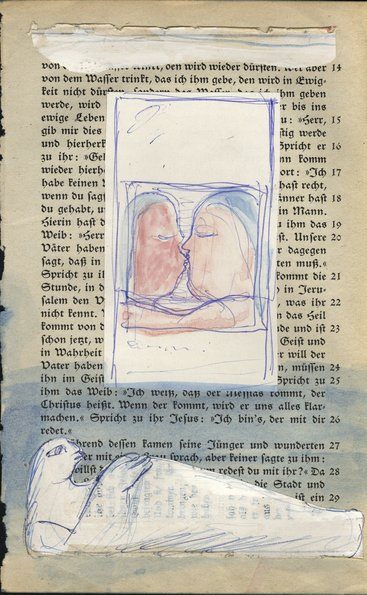 trinkt, den wird wieder dürsten. Wer aber 14
von dem Wasser trinkt, das ich ihm gebe, den wird in Ewig-
keit nicht dürsten, sondern das Wasser, das ich ihm geben
werde, wird r bis ins
ewige Leben u: »Herr, 15
gib mir dies stig werde
und hierherk Spricht er 16
zu ihr: »Geh nn komm
wieder hierh ort: »Ich 17
habe keinen hast recht,
wenn du sags änner hast 18
du gehabt, u in Mann.
Hierin hast d u ihm das 19
Weib: »Herr st. Unsere 20
Väter haben r dagegen
sagt, daß in ten muß.«
Spricht zu ih kommt die 21
Stunde, in d in Jeru-
salem den V , was ihr 22
nicht kennt. das Heil
kommt von d de und ist 23
schon jetzt, w Geist und
in Wahrheit er will der
Vater haben , müssen 24
ihn im Geist Spricht zu 25
ihm das Weib: »Ich weiß, daß der Messias kommt, der
Christus heißt. Wenn der kommt, wird er uns alles klar-
machen.« Spricht zu ihr Jesus: »Ich bin's, der mit dir 26
redet.«
ährend dessen kamen seine Jünger und wunderten 27
er mit ein zu sprach, aber keiner sagte zu ihm:
willst redest du mit ihr?« Da 28
die Stadt und
ist ein 29